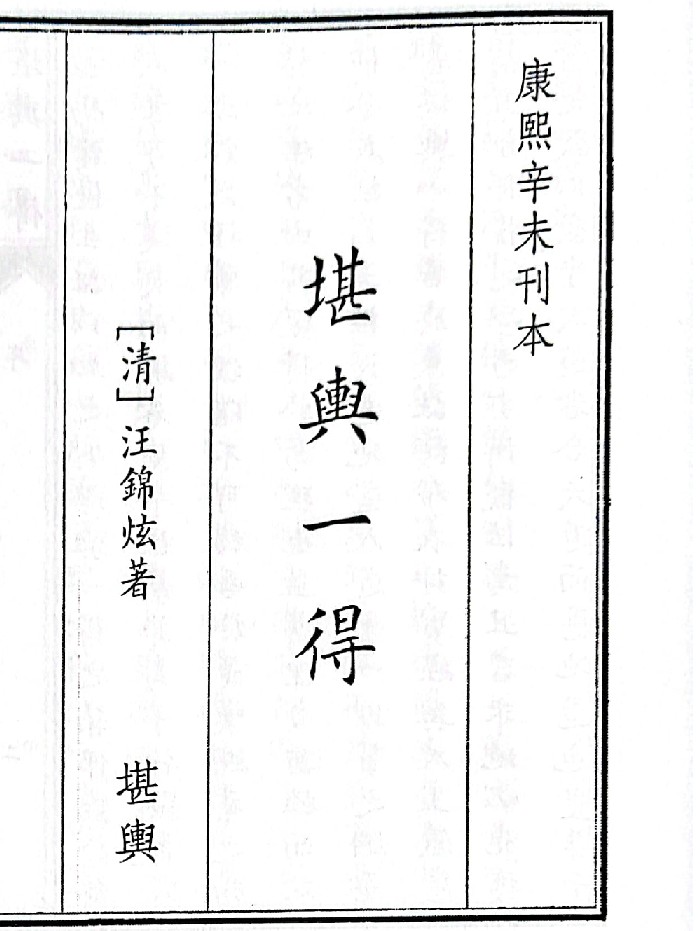 康熙辛未刊本
堪輿一得
［清］汪錦炫著
堪輿